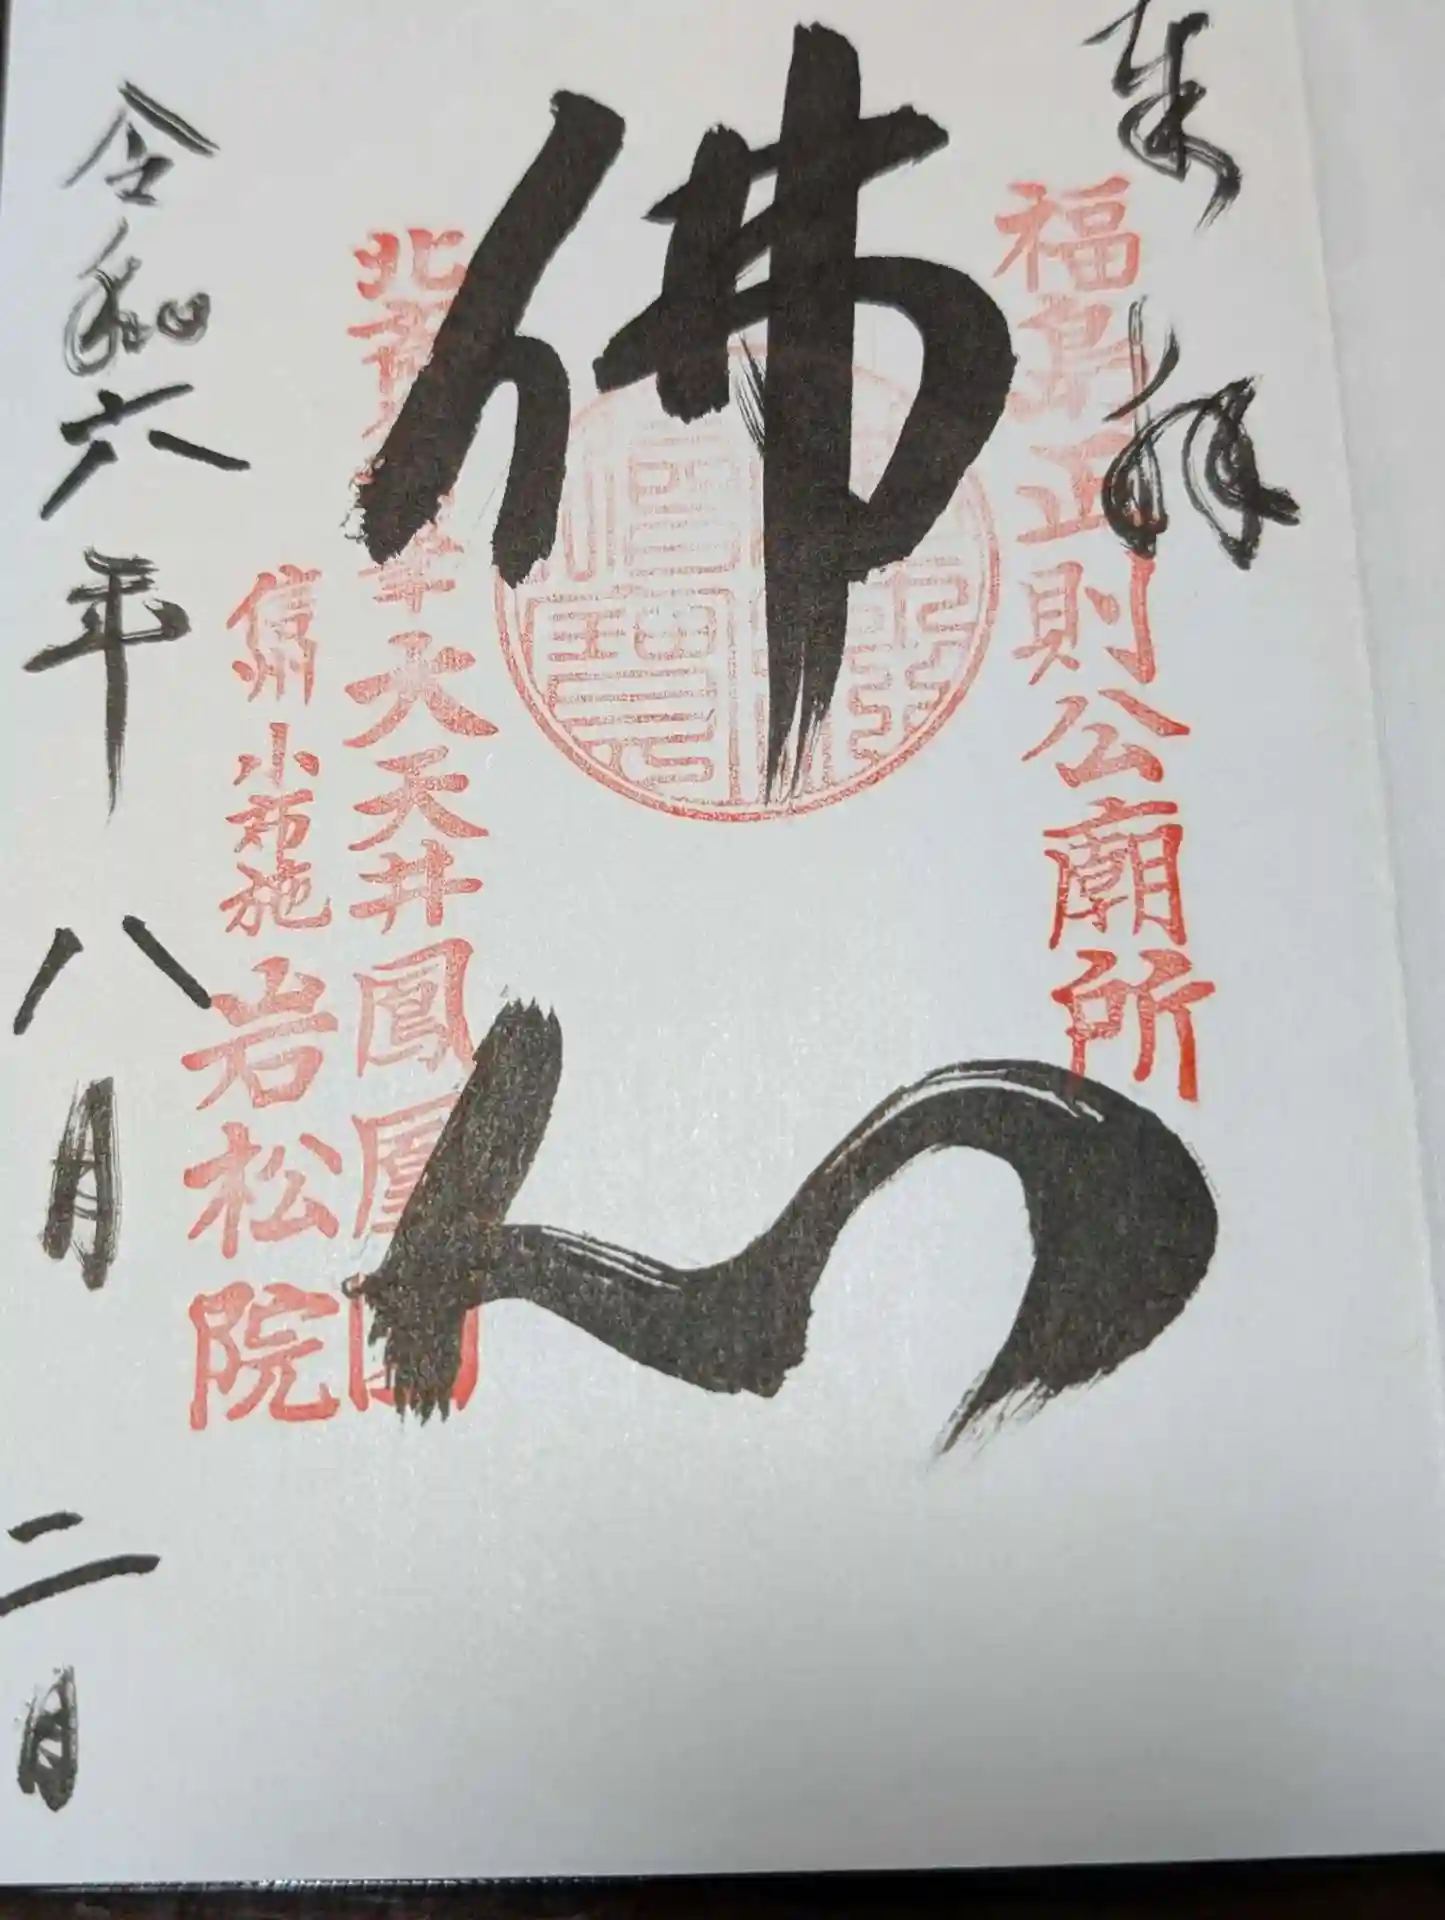 来拝
福島正則公廟所
佛心
北斎 筆大天井鳳凰図
信州小布施岩松院
令和六年八月二日